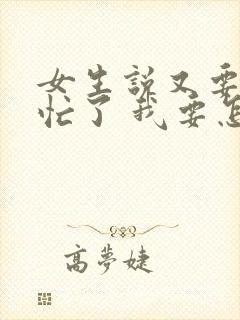 女生说又要
忙了 我要怎
高夢婕